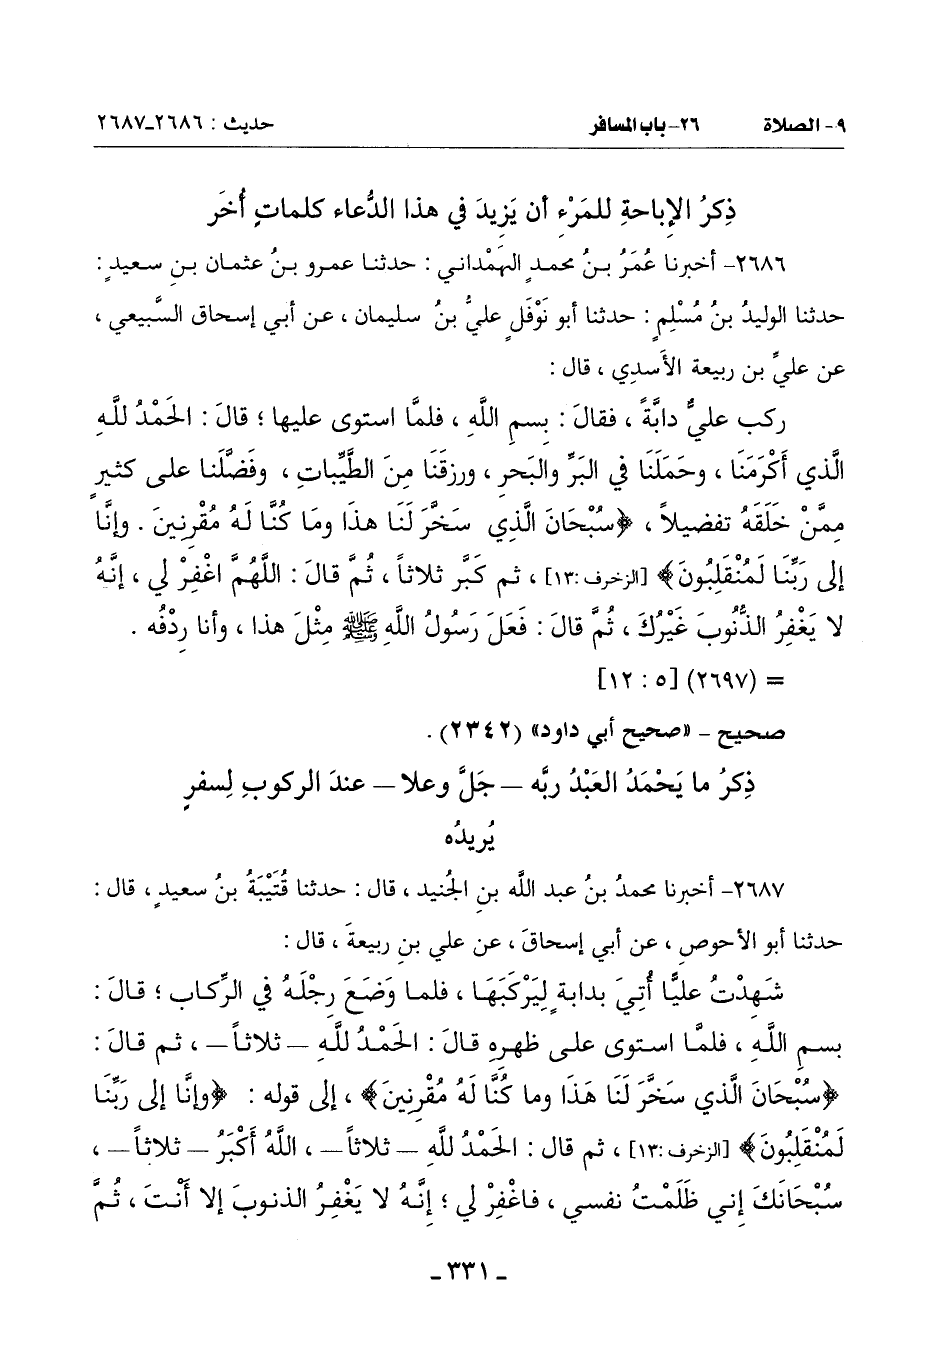 ٩- الصلاة ٢٦- باب المسافر حديث : ٢٦٨٦-٢٦٨٧
ذِكرُ الإباحةِ للمَرْءِ أن يَزِيدَ في هذا الدُّعاء كلماتٍ أُخَر
٢٦٨٦- أخبرنا عُمَرُ بنُ محمدٍ الهَمْداني : حدثنا عمرو بنُ عثمان بنِ سعيدٍ :
حدثنا الوليدُ بنُ مُسْلِمٍ : حدثنا أبو نَوْفَلٍ عليُّ بنُ سليمان ، عن أبي إسحاق السَّبيعي ،
عن عليِّ بن ربيعة الأَسدِي ، قال :
ركب عليٌّ دابَّةً ، فقالَ : بسمِ اللَّهِ ، فلمَّا استوى عليها ؛ قالَ : الحَمْدُ للَّهِ
الَّذي أَكْرَمَنَا ، وحَمَلَنَا في البَرِّ والبَحرِ ، ورزقَنَا مِنَ الطَّيِّباتِ ، وفَضَّلَنا على كثيرٍ
مِمَّنْ خَلَقَهُ تفضيلاً ، ﴿سُبْحَانَ الَّذِي سَخَّرَ لَنَا هذَا ومَا كُنَّا لَهُ مُقْرِنِينَ . وإنَّا
إلى رَبِّنَا لَمُنْقَلِبُونَ﴾ [الزخرف :١٣] ، ثم كَبَّر ثلاثاً ، ثُمَّ قالَ : اللَّهُمَّ اغْفِرْ لي ، إنَّهُ
لا يَغْفِرُ الذُّنُوبَ غَيْرُكَ ، ثُمَّ قالَ : فَعَلَ رَسُولُ اللَّهِ ﷺ مِثْلَ هذا ، وأنا رِدْفُه .
= (٢٦٩٧) [٥ : ١٢]
صحيح - «صحيح أبي داود» (٢٣٤٢) .
ذِكرُ ما يَحْمَدُ العَبْدُ ربَّه – جَلَّ وعلا – عندَ الركوبِ لِسفرٍ
يُريدُه
٢٦٨٧- أخبرنا محمدُ بنُ عبد اللَّه بنِ الجُنيد ، قال : حدثنا قُتَيْبَةُ بنُ سعيدٍ ، قال :
حدثنا أبو الأحوصِ ، عن أبي إسحاقَ ، عن علي بن ربيعةَ ، قال :
شَهِدْتُ عليًّا أُتِيَ بدابةٍ لِيَرْكَبَهَا ، فلما وَضَعَ رِجْلَهُ في الرِّكاب ؛ قالَ :
بسمِ اللَّهِ ، فلمَّا استوى على ظهرِهِ قالَ : الحَمْدُ للَّهِ – ثلاثاً – ، ثم قالَ :
﴿سُبْحَانَ الَّذي سَخَّرَ لَنَا هَذَا وما كُنَّا لَهُ مُقْرِنِينَ﴾ ، إلى قوله : ﴿وإنَّا إلى رَبِّنَا
لَمُنْقَلِبُونَ﴾ [الزخرف :١٣] ، ثم قال : الحَمْدُ للَّهِ – ثلاثاً – ، اللَّهُ أَكْبَرُ – ثلاثاً – ،
سُبْحَانَكَ إِني ظَلَمْتُ نفسي ، فاغْفِرْ لي ؛ إِنَّهُ لا يَغْفِرُ الذنوبَ إلا أَنْتَ ، ثُمَّ
- ٣٣١ -